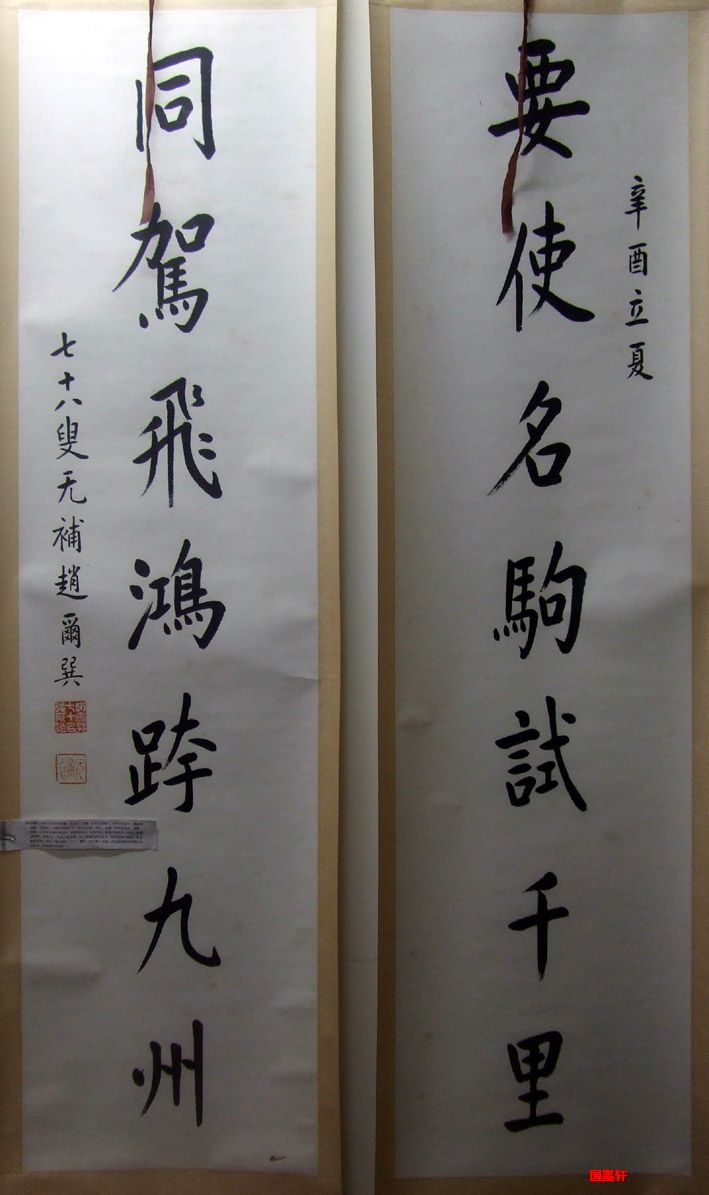 辛酉立夏
要使名駒試千里
同駕飛鴻跨九州
七十八叟无補趙爾巽
国斋轩